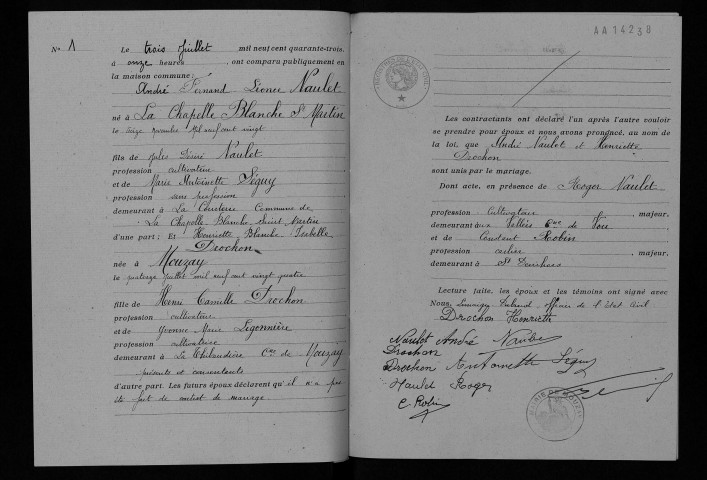 No 1
Le trois Juillet mil neuf cent quarante-trois,
à onze heures, ont comparu publiquement en
la maison commune:
André Fernand Lionel Naulet
né à La Chapelle Blanche St Martin
le seize novembre mil neuf cent vingt
fils de Jules Désiré Naulet
profession cultivateur
et de Marie Antoinette Séguy
profession sans profession
demeurant à La Commune de
La Chapelle Blanche Saint Martin
d'une part: Et Henriette Blanche Isabelle
Drochon
née à Mouzay
le quatorze juillet mil neuf cent vingt quatre
fille de Henri Camille Drochon
profession cultivateur
et de Yvonne Marie Ligonnière
profession cultivatrice
demeurant à La Thibaudière Cne de Mouzay
présents et consentants
d'autre part. Les futurs époux déclarent qu'il n'a pas
été fait de contrat de mariage.
AA14238
Les contractants ont déclaré l'un après l'autre vouloir
se prendre pour époux et nous avons prononcé, au nom de
la loi, que André Naulet et Henriette
Drochon
sont unis par le mariage.
Dont acte, en présence de Roger Naulet
profession cultivateur majeur.
demeurant aux Vallées Cne de Vou
et de Robin
profession majeur.
demeurant à St
Lecture faite, les époux et les témoins ont signé avec
Nous officier de l'Etat Civil
Drochon Henriette
Naulet André Naulet
Drochon
Drochon Antoinette Séguy
Naulet Roger
C. Robin